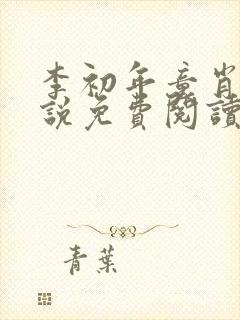 李初年章肖
說免費閱讀
青葉